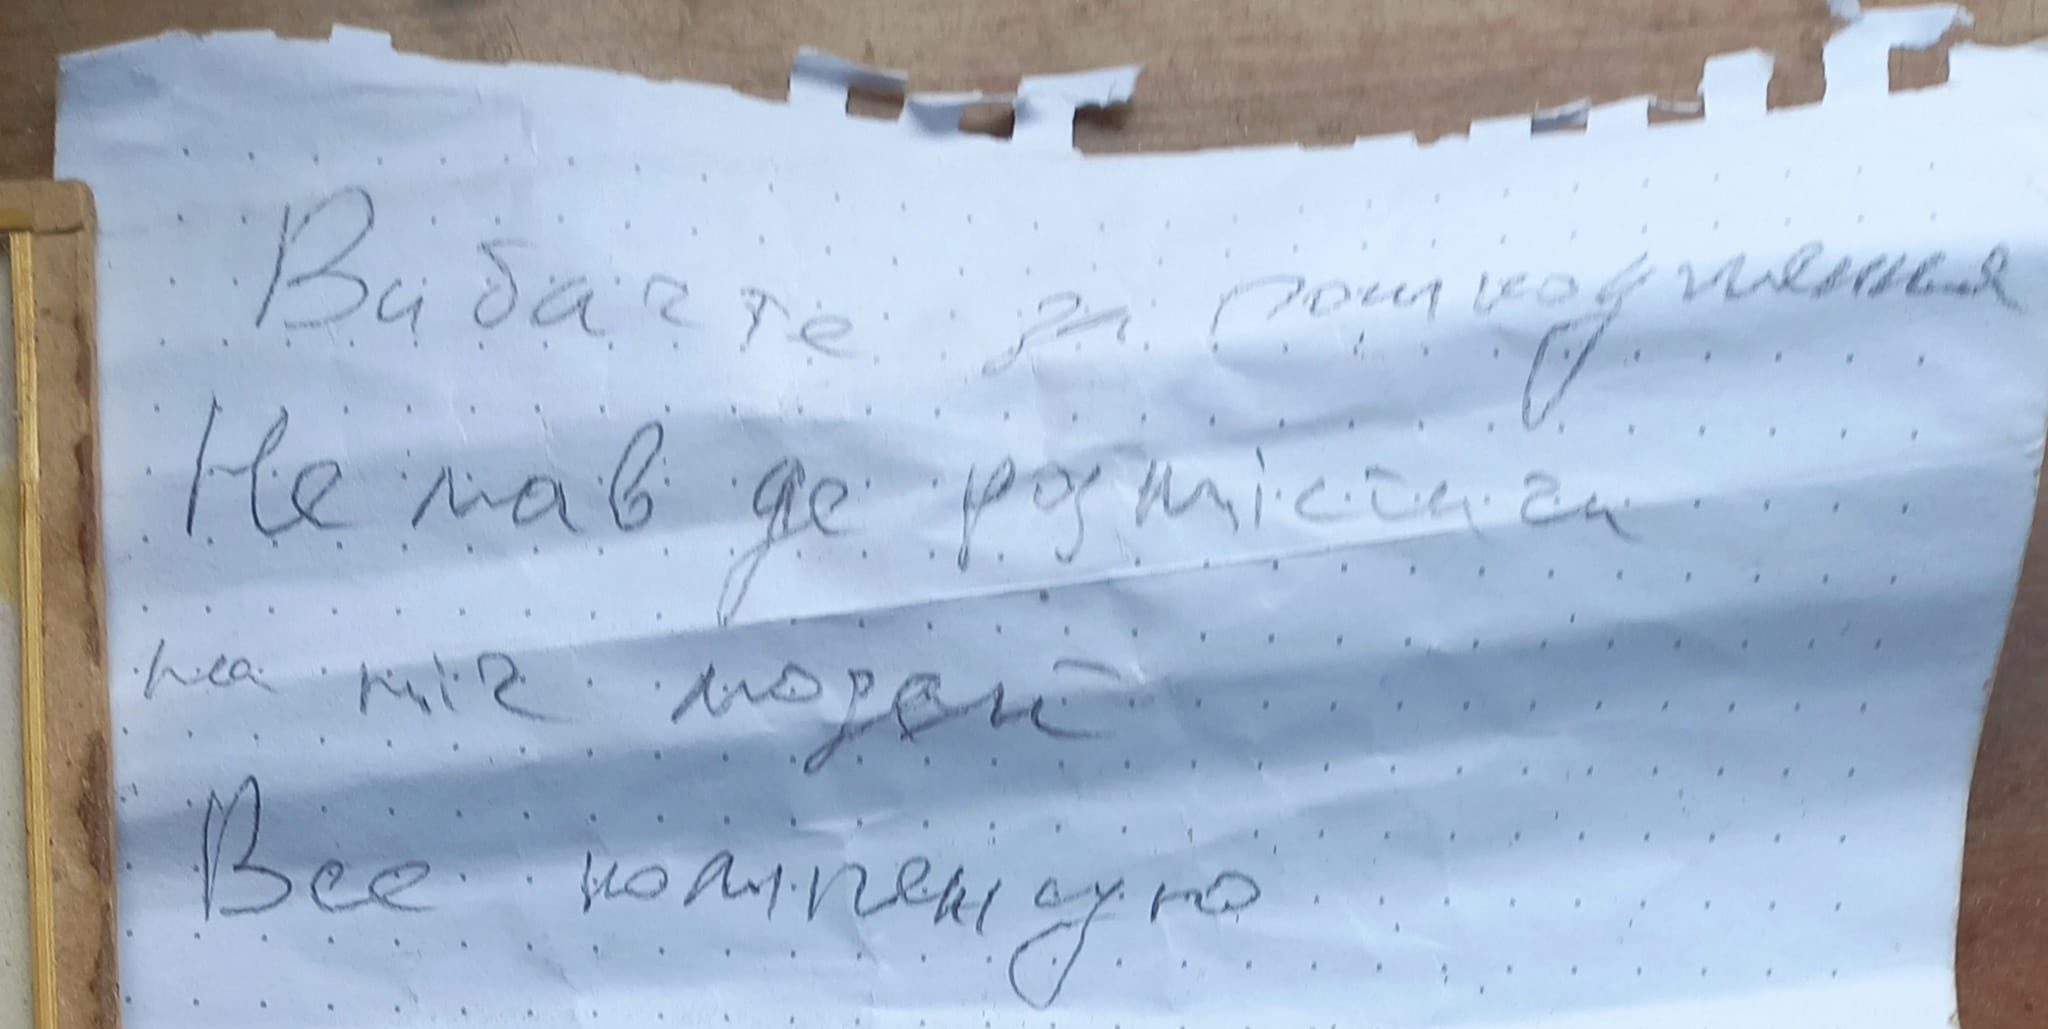 Вибачте за пошкодження
Не мав де розмістити
на ніч людей
Все компенсую